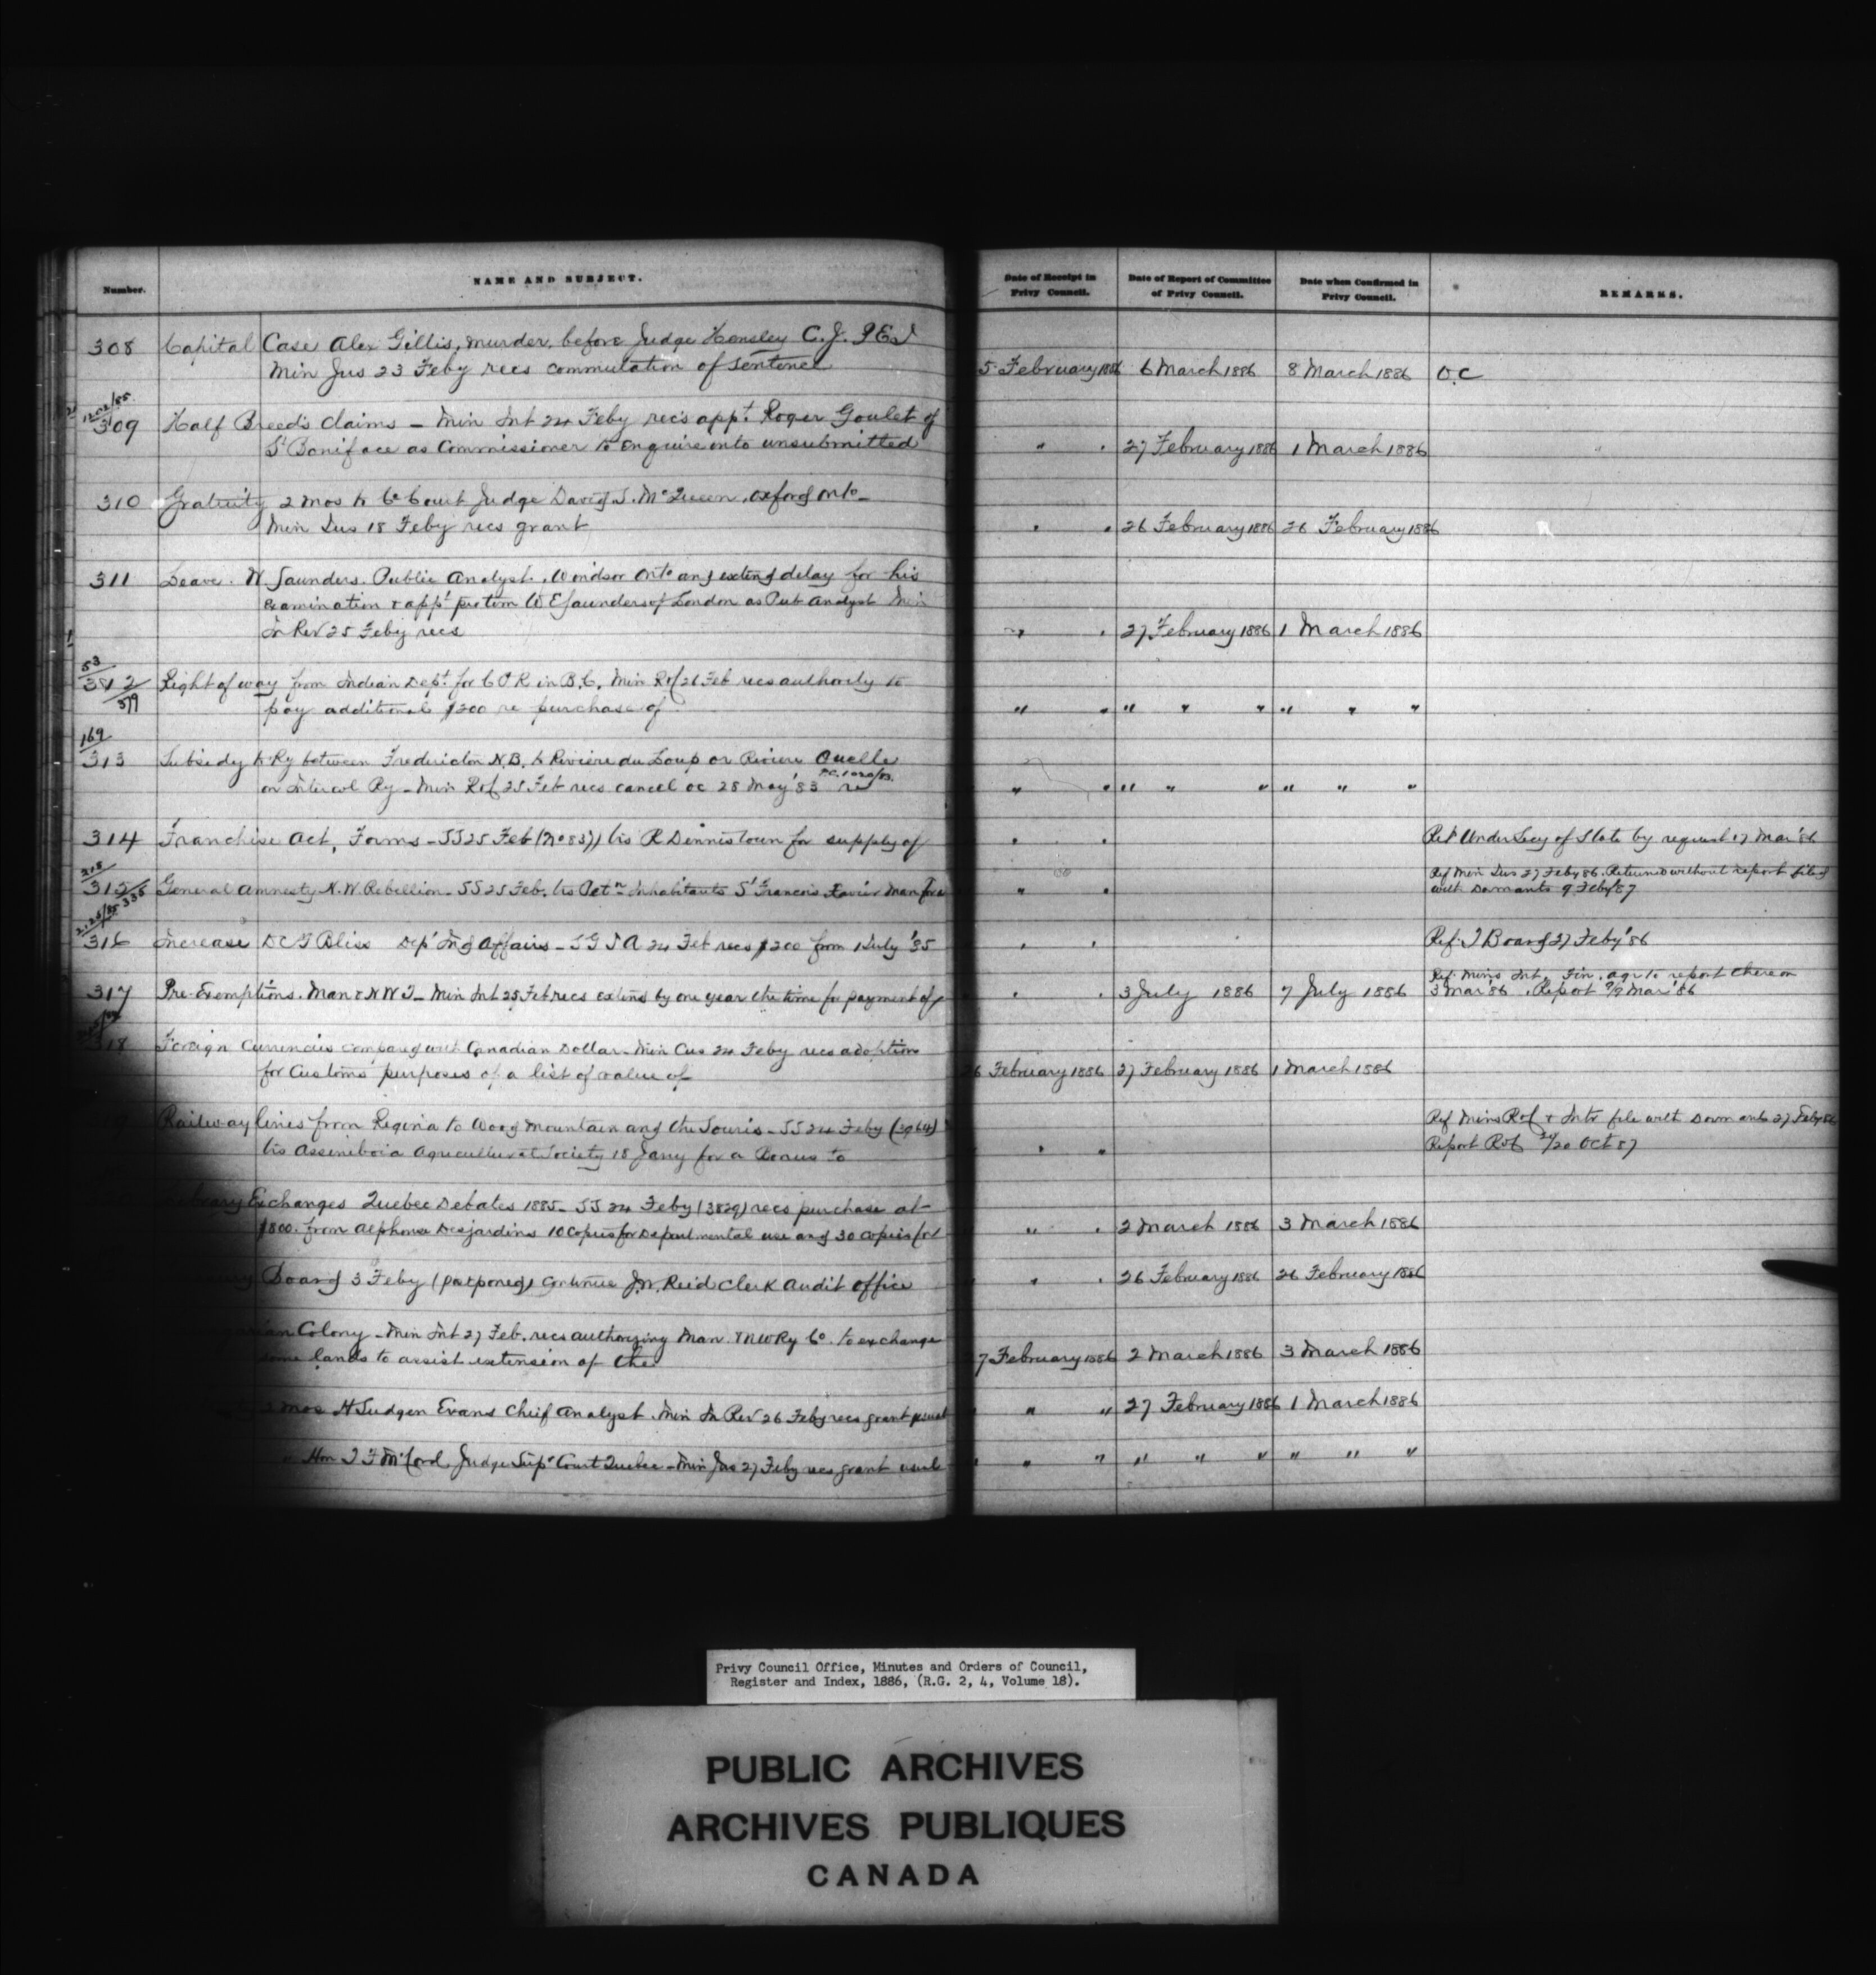 Number. NAME AND SUBJECT. Date of Receipt in Privy Council. Date of Report of Committee of Privy Council. Date when Confirmed in Privy Council. REMARKS.
308 Capital Case Alex Gillis, murder, before Judge Hensley C.J. P E I
Min Jus 23 Feby recs commutation of sentence 5 February 1886 6 March 1886 8 March 1886 O.C
1202/85
309 Half Breeds claims – Min Int 24 Feby recs appt. Roger Goulet of
St Boniface as Commissioner to enquire into unsubmitted " " 27 February 1886 1 March 1886
310 Gratuity 2 mos to Co Court Judge David S. McQueen, Oxford Onto –
Min Jus 18 Feby recs grant " " 26 February 1886 26 February 1886
311 Leave. W Saunders. Public Analyst. Windsor Onto and extend delay for his
Examination & appt pro tem W E Saunders of London as Pub Analyst Min
In Rev 25 Feby recs " " 27 February 1886 1 March 1886
53
312 Right of way from Indian Dept. for C P R in B.C. Min Rof 26 Feb recs authority to
579
pay additional $200 re purchase of " " " " " " " "
169
313 Subsidy to Ry between Fredericton N.B. to Riviere du Loup or Riviere Ouelle
on Intercol Ry – Min Rof 25 Feb recs cancel oc 28 May '83 re " " " " " " " "
314 Franchise Act, Forms – SS 25 Feb R Dennistoun for supply of " " Ret Under Secy of State by request 17 Mar '86
General amnesty N.W. Rebellion – SS 25 Feb. Petn Inhabitants St Francis Xavier Man " " Ref Min Jus 27 Feby 86. Returned without report filed
with Dormants 9 Feby 87
316 Increase D C F Bliss Dept Ind Affairs – S G I A 24 Feb recs $200 from 1 July '85 " " Ref. T Board 27 Feby '86
317 Pre-Exemptions. Man & N W T – Min Int 25 Feb recs extend by one year the time for payment of " " 3 July 1886 7 July 1886 Ref. Mins Int, Fin, Agr to report thereon
3 Mar '86. Report 9/9 Mar '86
318 Foreign Currencies compared with Canadian Dollar – Min Cus 24 Feby recs adoption
for Customs purposes of a list of value of 26 February 1886 27 February 1886 1 March 1886
Railway lines from Regina to Wood Mountain and the Souris – SS 24 Feby Ref Mins Rof & Intr file with Dormants 27 Feby 86
Assiniboia Agricultural Society 18 Jany for a Bonus to " " Report Rof 20 Oct 87
Exchanges Quebec Debates 1885 – SS 24 Feby (3829) recs purchase at
$800. from Alphonse Desjardins 10 Copies for Departmental use and 30 copies for " " 2 March 1886 3 March 1886
Board 3 Feby (postponed) continue J.W. Reid Clerk Audit office " " 26 February 1886 26 February 1886
Colony – Min Int 27 Feb. recs authorizing Man & N W Ry Co. to exchange
some lands to assist extension of the 7 February 1886 2 March 1886 3 March 1886
2 mos H Sudgen Evans Chief Analyst Min In Rev 26 Feby recs grant usual " " 27 February 1886 1 March 1886
" Hon T F McCord Judge Supr Court Quebec – Min Jus 27 Feby recs grant usual " " " " " " " "
Privy Council Office, Minutes and Orders of Council,
Register and Index, 1886, (R.G. 2, 4, Volume 18).
PUBLIC ARCHIVES
ARCHIVES PUBLIQUES
CANADA